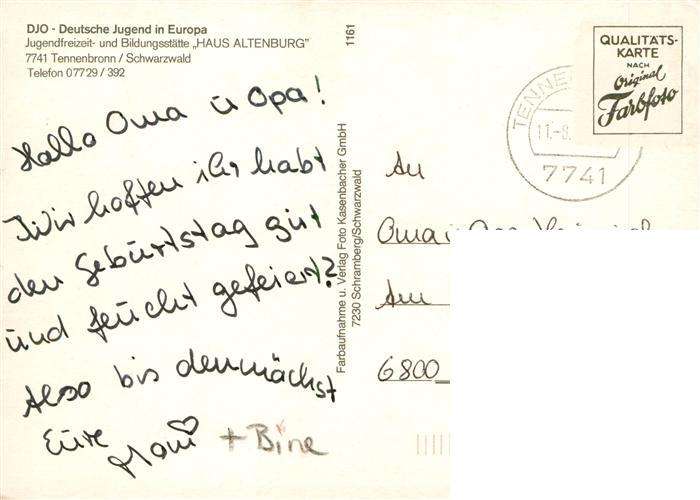 DJO - Deutsche Jugend in Europa
Jugendfreizeit- und Bildungsstätte „HAUS ALTENBURG"
7741 Tennenbronn / Schwarzwald
Telefon 07729 / 392
Hallo Oma u Opa!
Wir hoffen ihr habt
den Geburtstag gut
und feucht gefeiert?
Also bis demnächst
Eure
+ Bine
1161
Farbaufnahme u. Verlag Foto Kasenbacher GmbH
7230 Schramberg/Schwarzwald
QUALITÄTS-
KARTE
NACH
Original
Farbfoto
TENNE
11.-8.
7741
An
Oma u
Am
6800